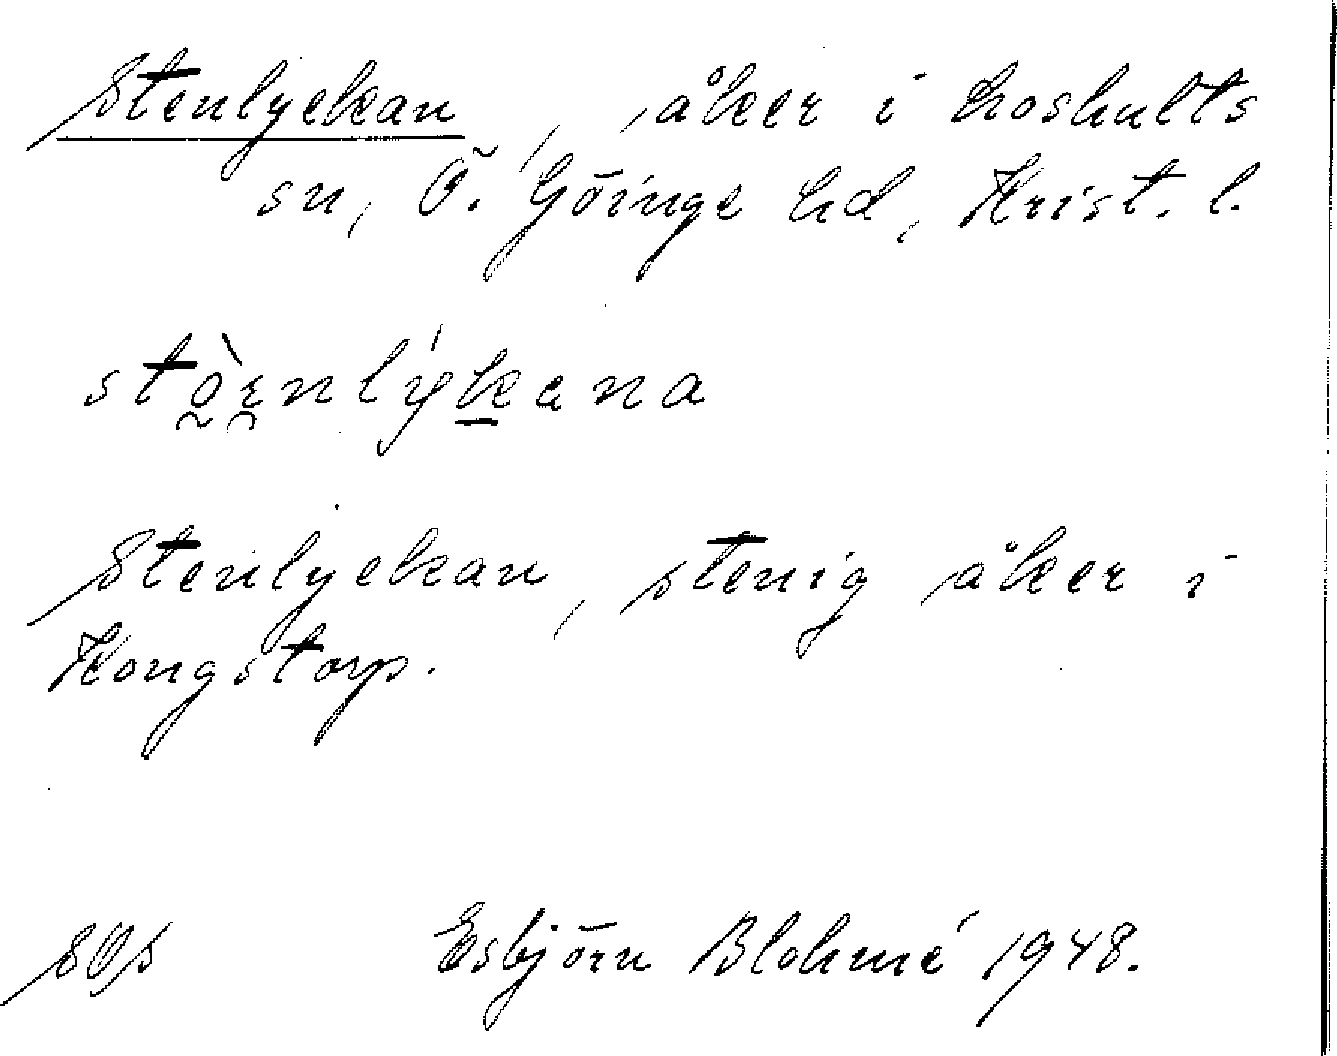 Stenlyckan, åker i Loshults
sn, Ö. Göinge hd, Krist. l.
stò̰ȩnlýk̲ana
Stenlyckan, stenig åker i
Kongstorp.
Esbjörn Blohmé 1948.